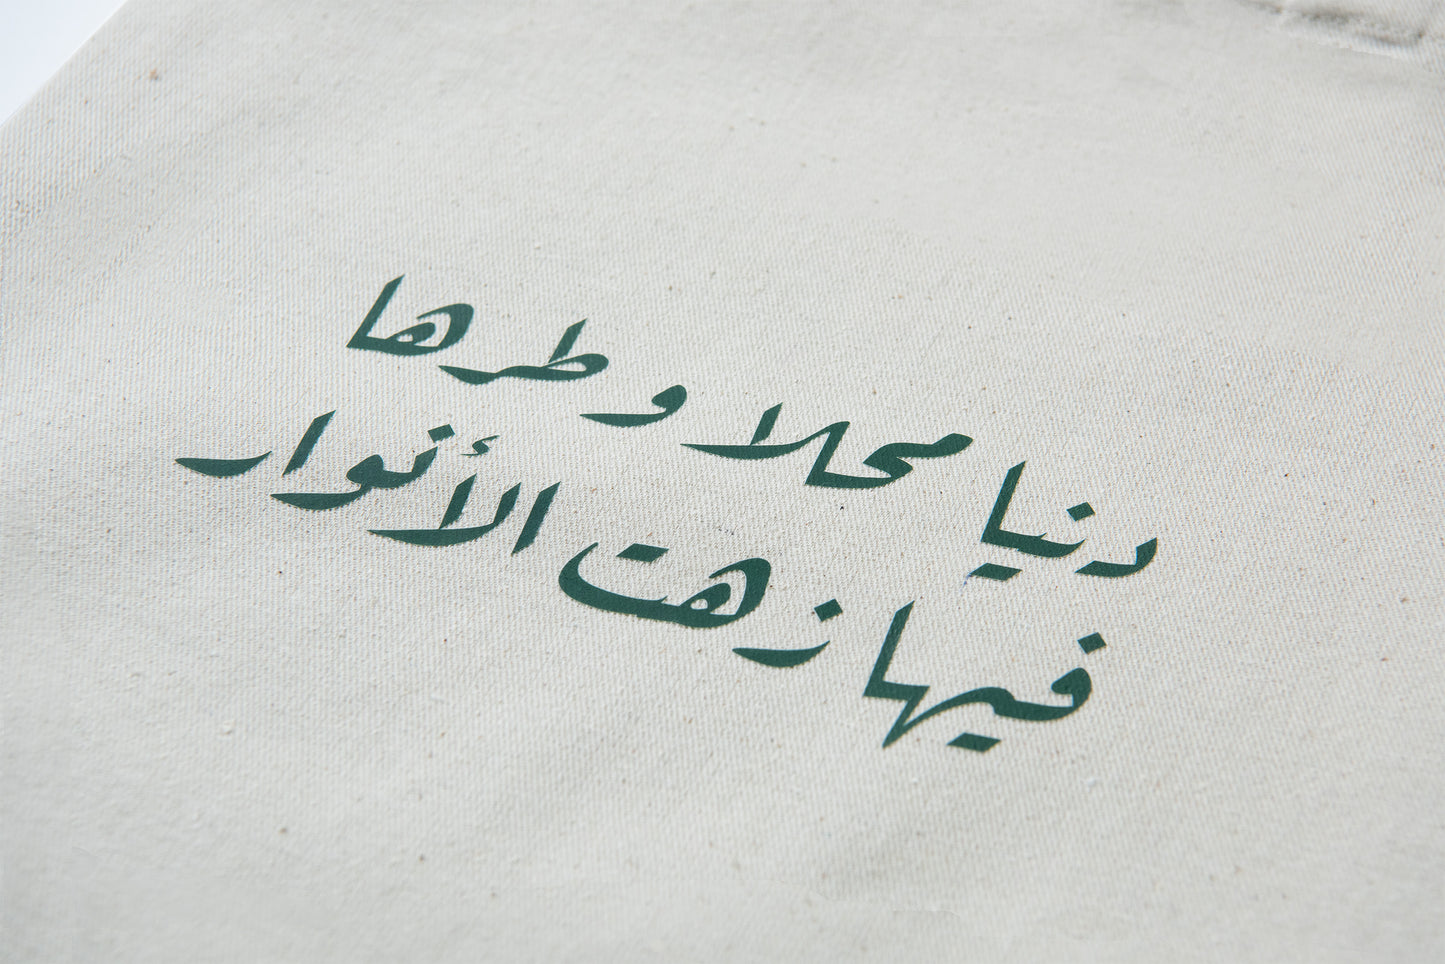 دنيا محلا وطرها
فيها زهت الأنوار